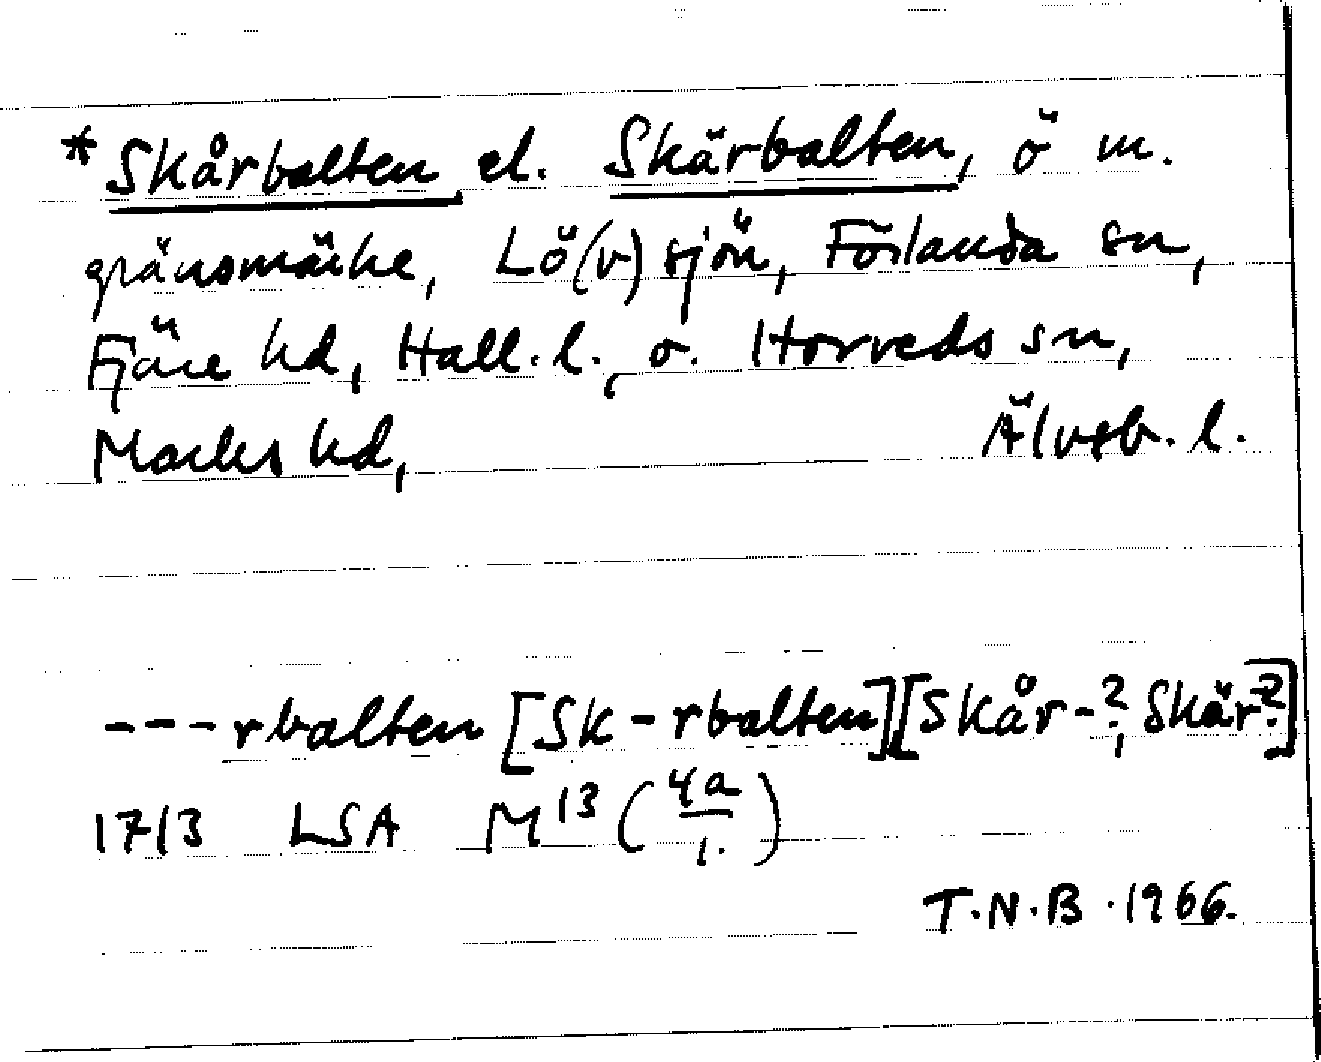 *Skårbalten el. Skärbalten, ö m.
gränsmärke, Lö(v)sjön, Förlanda sn,
Fjäre hd, Hall. l., o. Horreds sn,
Marks hd, Älvsb. l.
---rbalten [Sk-rbalten][Skår-?, Skär?]
1713 LSA M13 (4a/1.)
T.N.B. 1966.